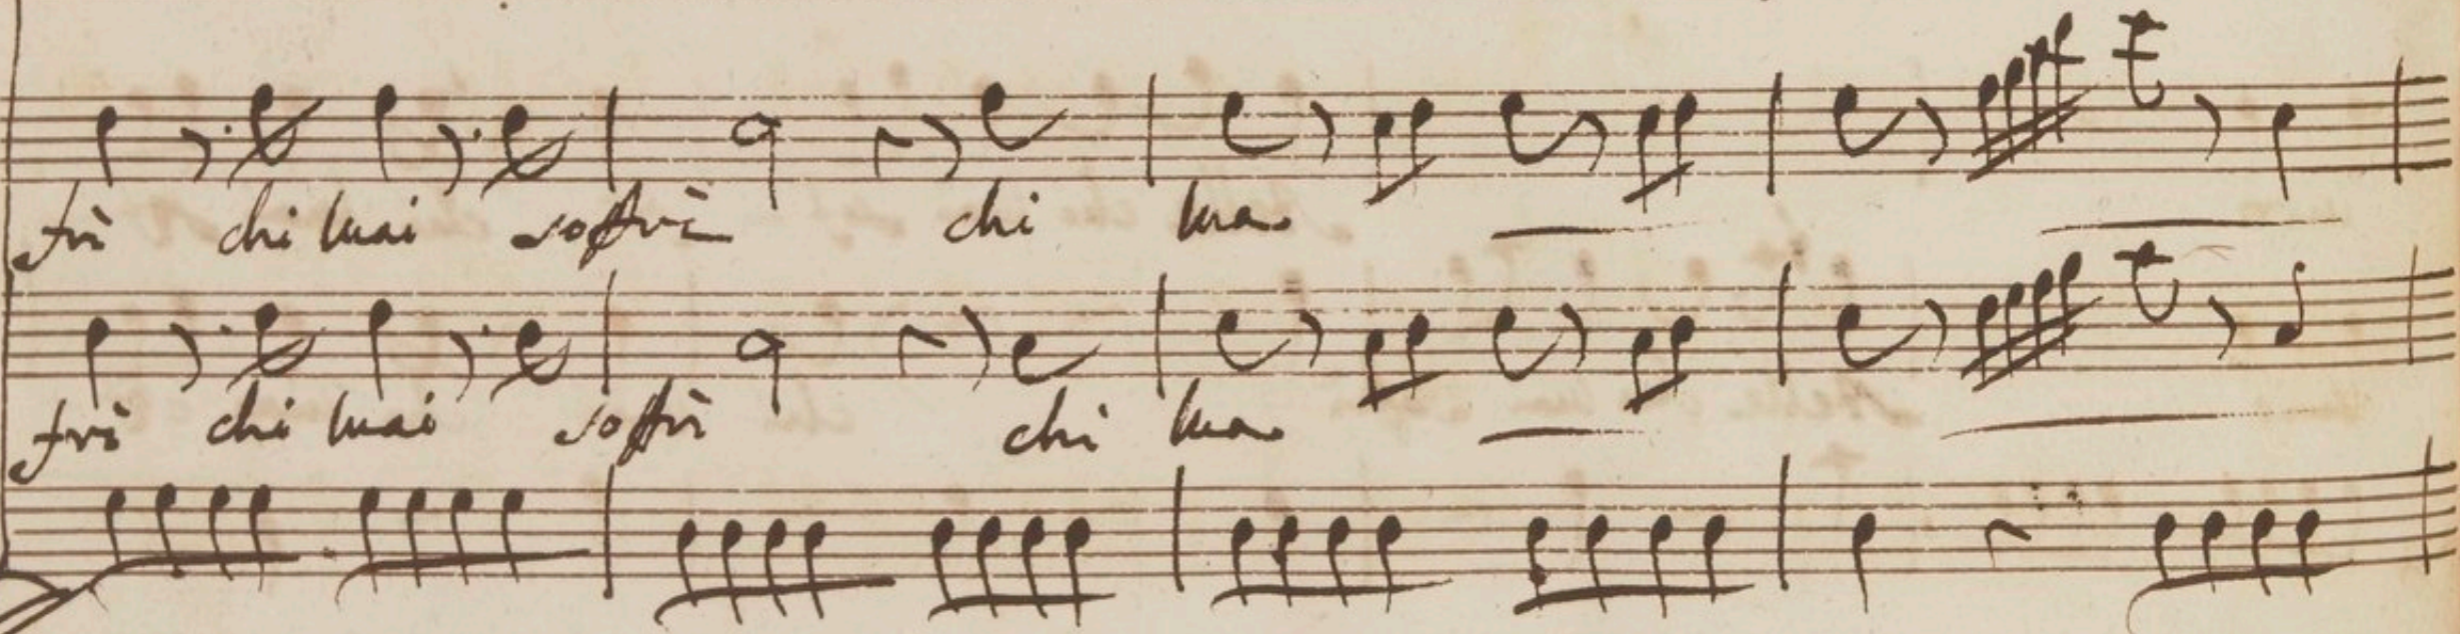 frì chi mai soffrì chi ma
frì chi mai soffrì chi ma